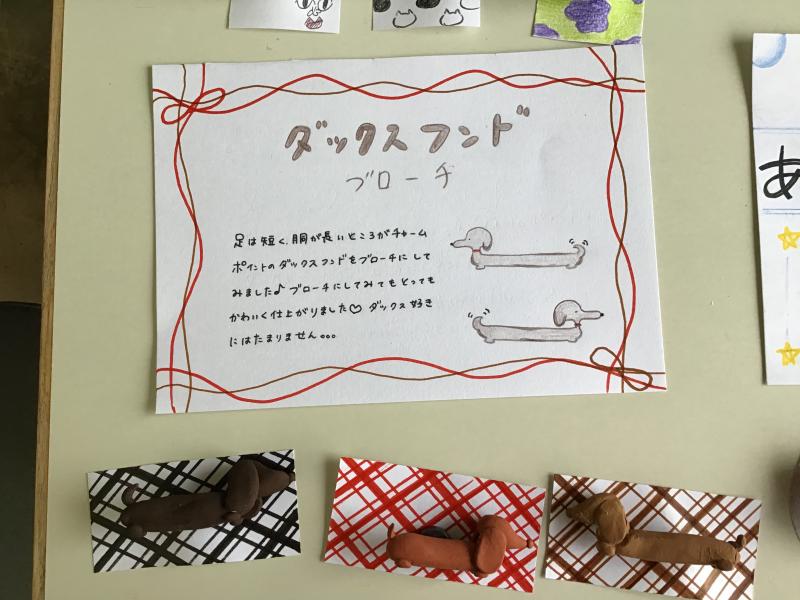 ダックスフンド
ブローチ
足は短く、胴が長いところがチャーム
ポイントのダックスフンドをブローチにして
みました♪ブローチにしてみてもとっても
かわいく仕上がりました♡ ダックス好き
にはたまりません。。。
あ